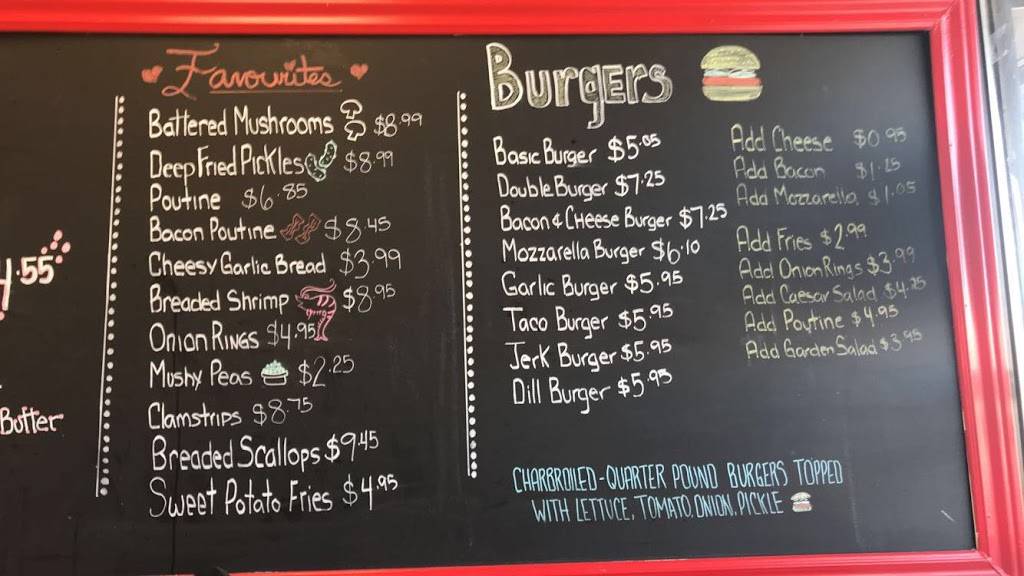 4.55
Butter
Favourites
Battered Mushrooms $8.99
Deep Fried Pickles $8.99
Poutine $6.85
Bacon Poutine $8.45
Cheesy Garlic Bread $3.99
Breaded Shrimp $8.95
Onion Rings $4.95
Mushy Peas $2.25
Clamstrips $8.75
Breaded Scallops $9.45
Sweet Potato Fries $4.95
Burgers
Basic Burger $5.05
Double Burger $7.25
Bacon & Cheese Burger $7.25
Mozzarella Burger $6.10
Garlic Burger $5.95
Taco Burger $5.95
Jerk Burger $5.95
Dill Burger $5.95
Add Cheese $0.95
Add Bacon $1.25
Add Mozzarella $1.05
Add Fries $2.99
Add Onion Rings $3.99
Add Caesar Salad $4.25
Add Poutine $4.95
Add Garden Salad $3.95
CHARBROILED-QUARTER POUND BURGERS TOPPED
WITH LETTUCE, TOMATO, ONION, PICKLE